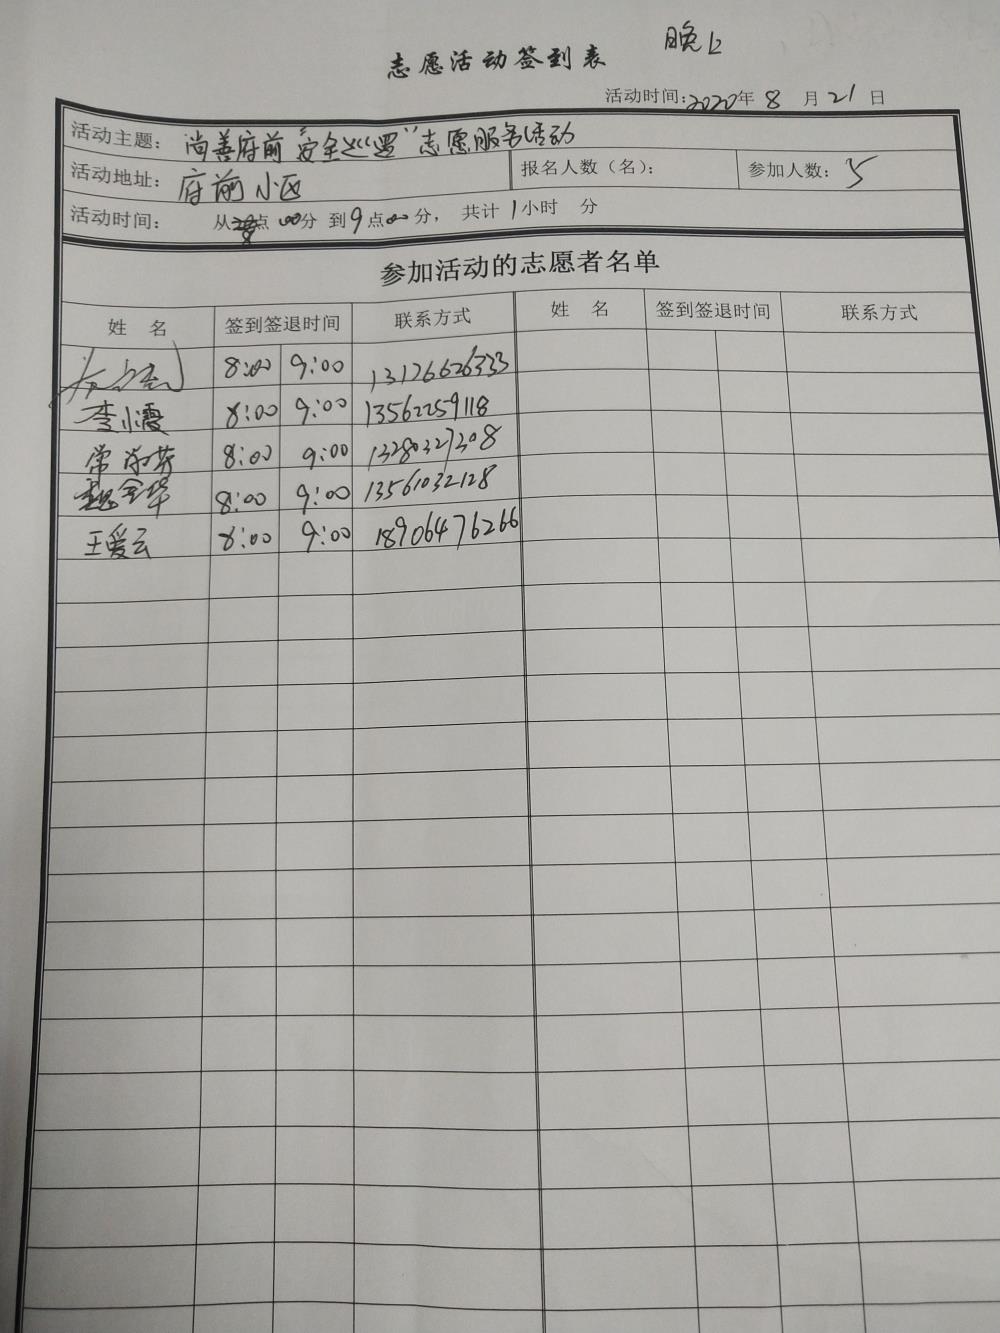 晚上
志愿活动签到表
活动时间:2020年 8 月 21 日
活动主题: 尚善府前“安全巡逻”志愿服务活动
活动地址: 府前小区 报名人数(名): 参加人数: 5
活动时间: 从8点00分 到9点00分, 共计1小时 分
参加活动的志愿者名单
姓 名 签到签退时间 联系方式 姓 名 签到签退时间 联系方式
8:00 9:00 13126626333
李小霞 8:00 9:00 13562259118
常 8:00 9:00 13280327308
魏金华 8:00 9:00 13561032128
王爱云 8:00 9:00 18906476266